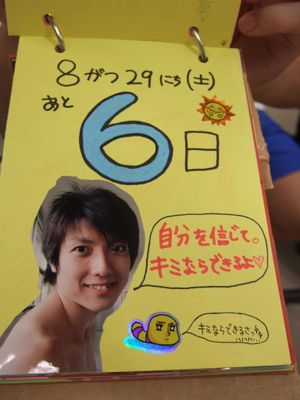 8がつ29にち(土)
あと
6日
自分を信じて。
キミならできるよ♡
キミならできるさっ